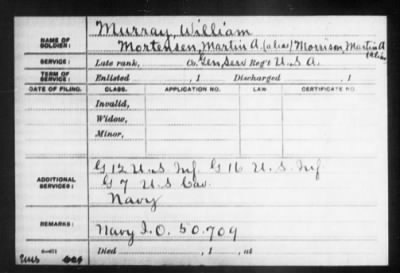 NAME OF SOLDIER: Murray, William
Mortensen, Martin A. (alias) Morrison, Martin A
(Alias
SERVICE: Late rank, Co. Gen Serv Reg't U.S.A
TERM OF SERVICE: Enlisted , 1 Discharged , 1
DATE OF FILING. CLASS. APPLICATION NO. LAW. CERTIFICATE NO.
Invalid,
Widow,
Minor,
ADDITIONAL SERVICES: G 12 U.S. Inf. G 16 U.S. Inf
G 7 U.S Cav.
Navy
REMARKS: Navy I.O. 50.709
Died , 1 , at